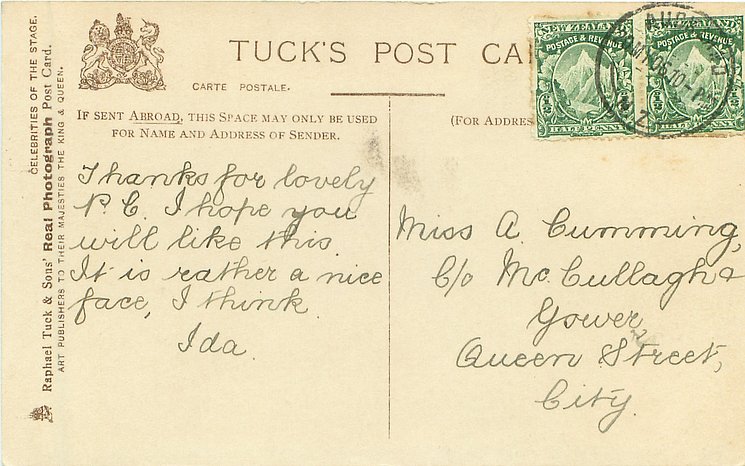 TUCK'S POST CAR
CARTE POSTALE.
IF SENT ABROAD, THIS SPACE MAY ONLY BE USED
FOR NAME AND ADDRESS OF SENDER.
(FOR ADDRES
CELEBRITIES OF THE STAGE.
Raphael Tuck & Sons' Real Photograph Post Card.
ART PUBLISHERS TO THEIR MAJESTIES THE KING & QUEEN.
Thanks for lovely
P.C. I hope you
will like this.
It is rather a nice
face, I think.
Ida.
Miss A. Cumming,
C/o Mc. Cullagh &
Gower
Queen Street,
City.
NEW ZEALAND
POSTAGE & REVENUE
HALF PENNY
POSTAGE & REVENUE
HALF PENNY
N.Z.